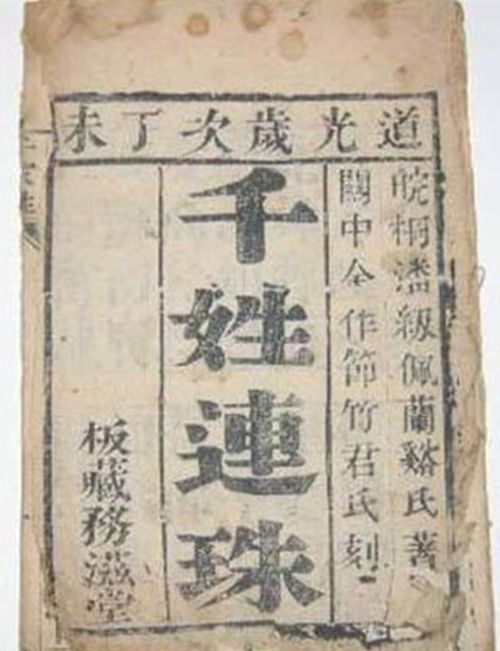 道光歲次丁未
皖桐潘級佩蘭谿氏著
關中仝作節竹君氏刻
千姓連珠
板藏務滋堂